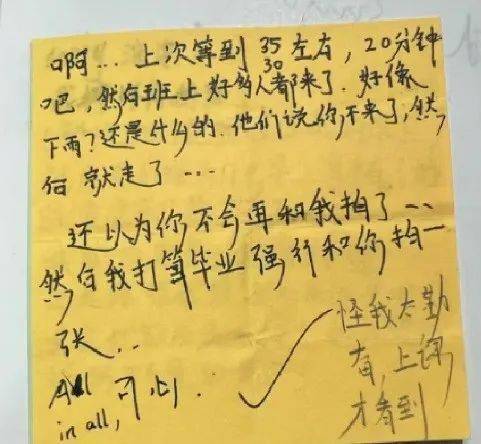 啊... 上次等到 35 左右，20分钟
30
吧，然后班上好多人都来了. 好像
下雨？还是什么的. 他们说你不来了，然
后 就走了 ...
还以为你不会再和我拍了 ...
然后我打算毕业强行和你拍一
张...
All 可以.
in all,
怪我太勤
奋，上课
才看到